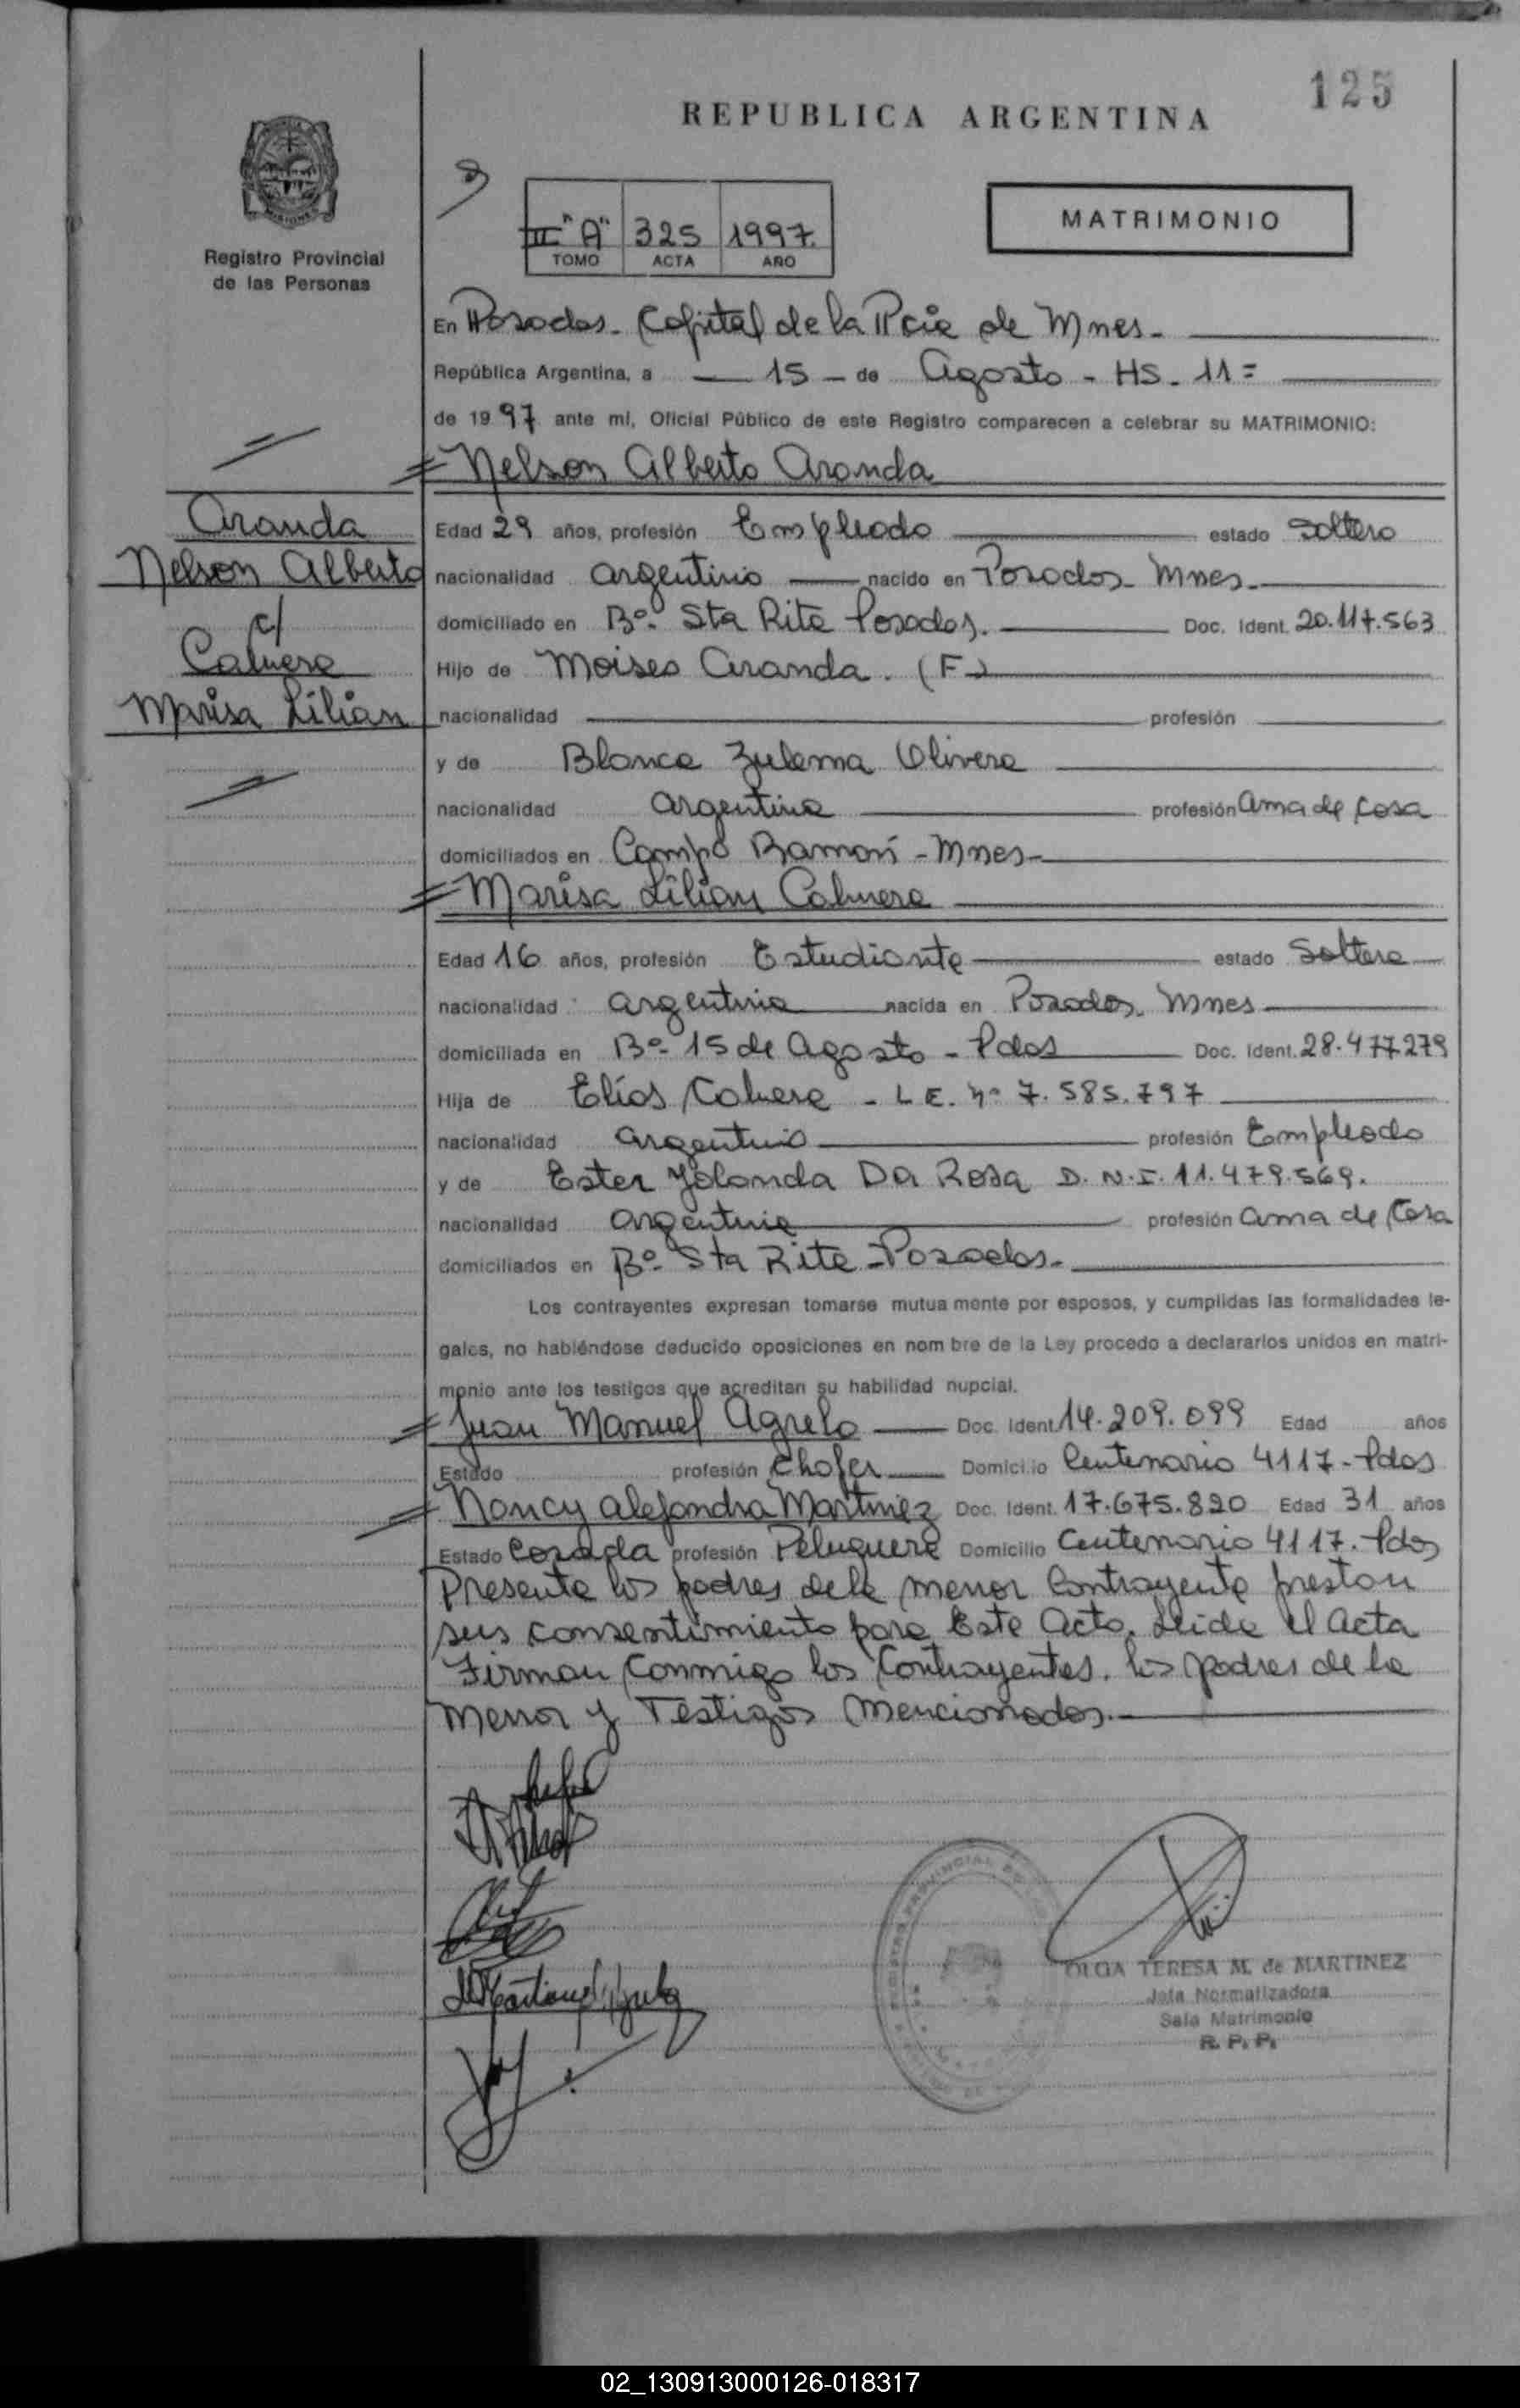 125
REPUBLICA ARGENTINA
MISIONES
Registro Provincial
de las Personas
III "A" 325 1997.
TOMO ACTA AÑO
MATRIMONIO
En Posadas - Capital de la Pcia de Mnes -
República Argentina, a 15 - de Agosto - HS. 11 =
de 1997 ante mí, Oficial Público de este Registro comparecen a celebrar su MATRIMONIO:
Nelson Alberto Aranda
Aranda
Nelson Alberto
c/
Marisa Lilian
Edad 29 años, profesión Empleado estado Soltero
nacionalidad argentino nacido en Posadas - Mnes -
domiciliado en Bº. Sta Rita Posadas. Doc. Ident. 20.117.563
Hijo de Moises Aranda. (F)
nacionalidad profesión
y de Blanca Zulema Olivera
nacionalidad argentina profesión ama de casa
domiciliados en Campo Ramon - Mnes -
Marisa Lilian
Edad 16 años, profesión Estudiante estado Soltera
nacionalidad argentina nacida en Posadas. Mnes
domiciliada en Bº. 15 de Agosto - Pdas Doc. Ident. 28.477279
Hija de Elías - L E. nº 7.585.797
nacionalidad argentino profesión Empleado
y de Ester Yolanda Da Rosa D.N.I. 11.479.569.
nacionalidad argentina profesión ama de Casa
domiciliados en Bº. Sta Rita - Posadas.
Los contrayentes expresan tomarse mutua mente por esposos, y cumplidas las formalidades le-
gales, no habiéndose deducido oposiciones en nom bre de la Ley procedo a declararlos unidos en matri-
monio ante los testigos que acreditan su habilidad nupcial.
Juan Manuel Agrelo Doc. Ident. 14.209.099 Edad años
Estado profesión Chofer Domicilio Centenario 4117 - Pdas
Nancy Alejandra Martinez Doc. Ident. 17.675.820 Edad 31 años
Estado Casada profesión Peluquera Domicilio Centenario 4117. Pdas
Presente los padres de la menor Contrayente prestan
sus consentimiento para Este Acto. Leida el acta
Firman Conmigo los Contrayentes. los padres de la
menor y Testigos mencionados.
OLGA TERESA M. de MARTINEZ
Jefa Normalizadora
Sala Matrimonio
R. P. P.
02_130913000126-018317